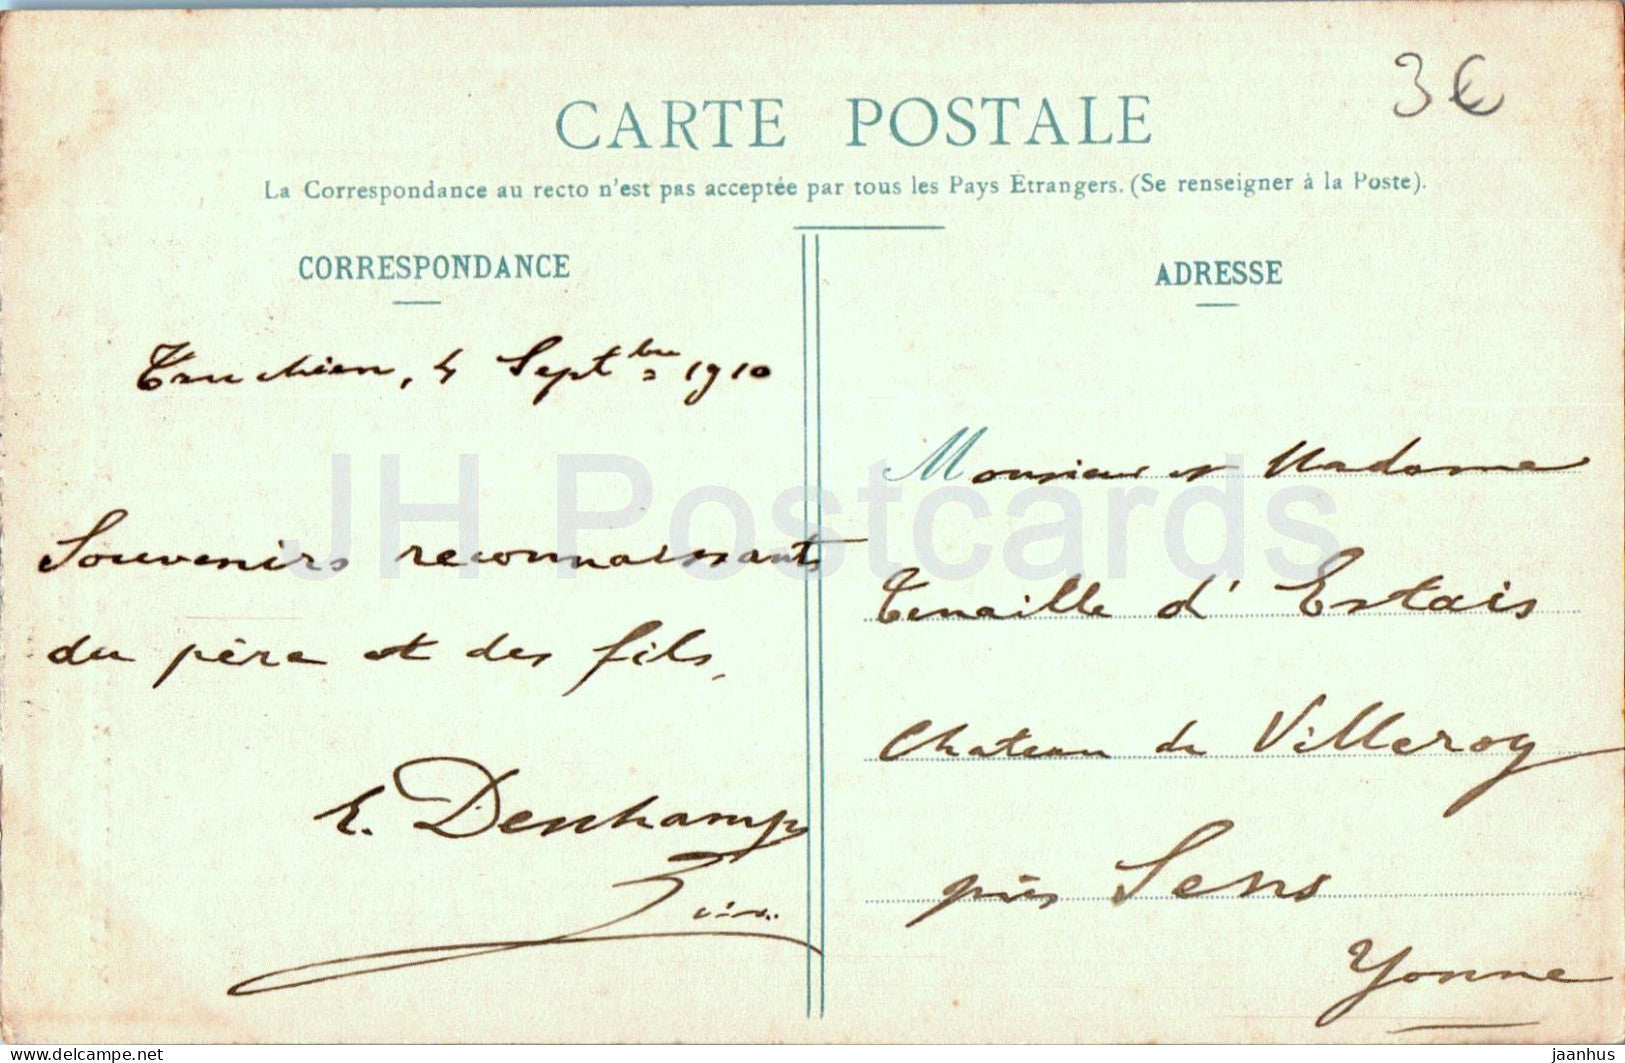 3€
CARTE POSTALE
La Correspondance au recto n'est pas acceptée par tous les Pays Étrangers. (Se renseigner à la Poste).
CORRESPONDANCE
4 Septbre 1910
Souvenirs reconnaissants
du père et des fils.
E. Deschamps
ADRESSE
Monsieur et Madame
Tenaille d'Estais
Chateau de Villeroy
près Sens
Yonne
JH Postcards
www.delcampe.net
jaanhus